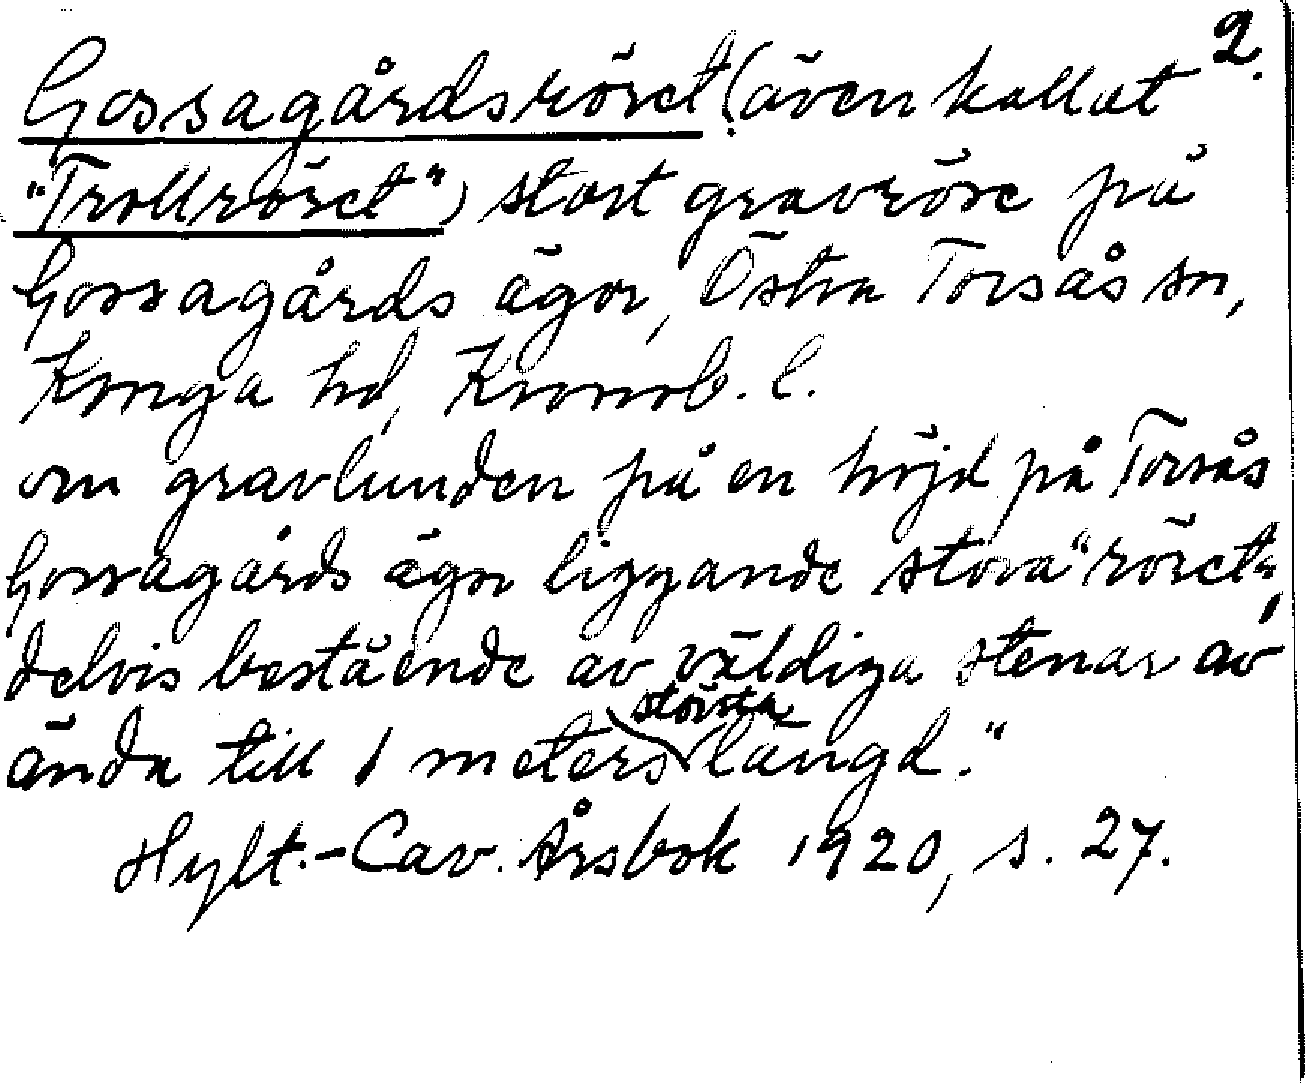 2.
Gossagårdsröret (även kallat
"Trollröret") stort gravröse på
Gossagårds ägor, Östra Torsås sn,
Konga hd, Kronob. l.
om gravlunden på en höjd på Torsås
Gossagårds ägor liggande stora "röret",
delvis bestående av väldiga stenar av
ända till 1 meters största längd."
Hylt.-Cav. Årsbok 1920, s. 27.